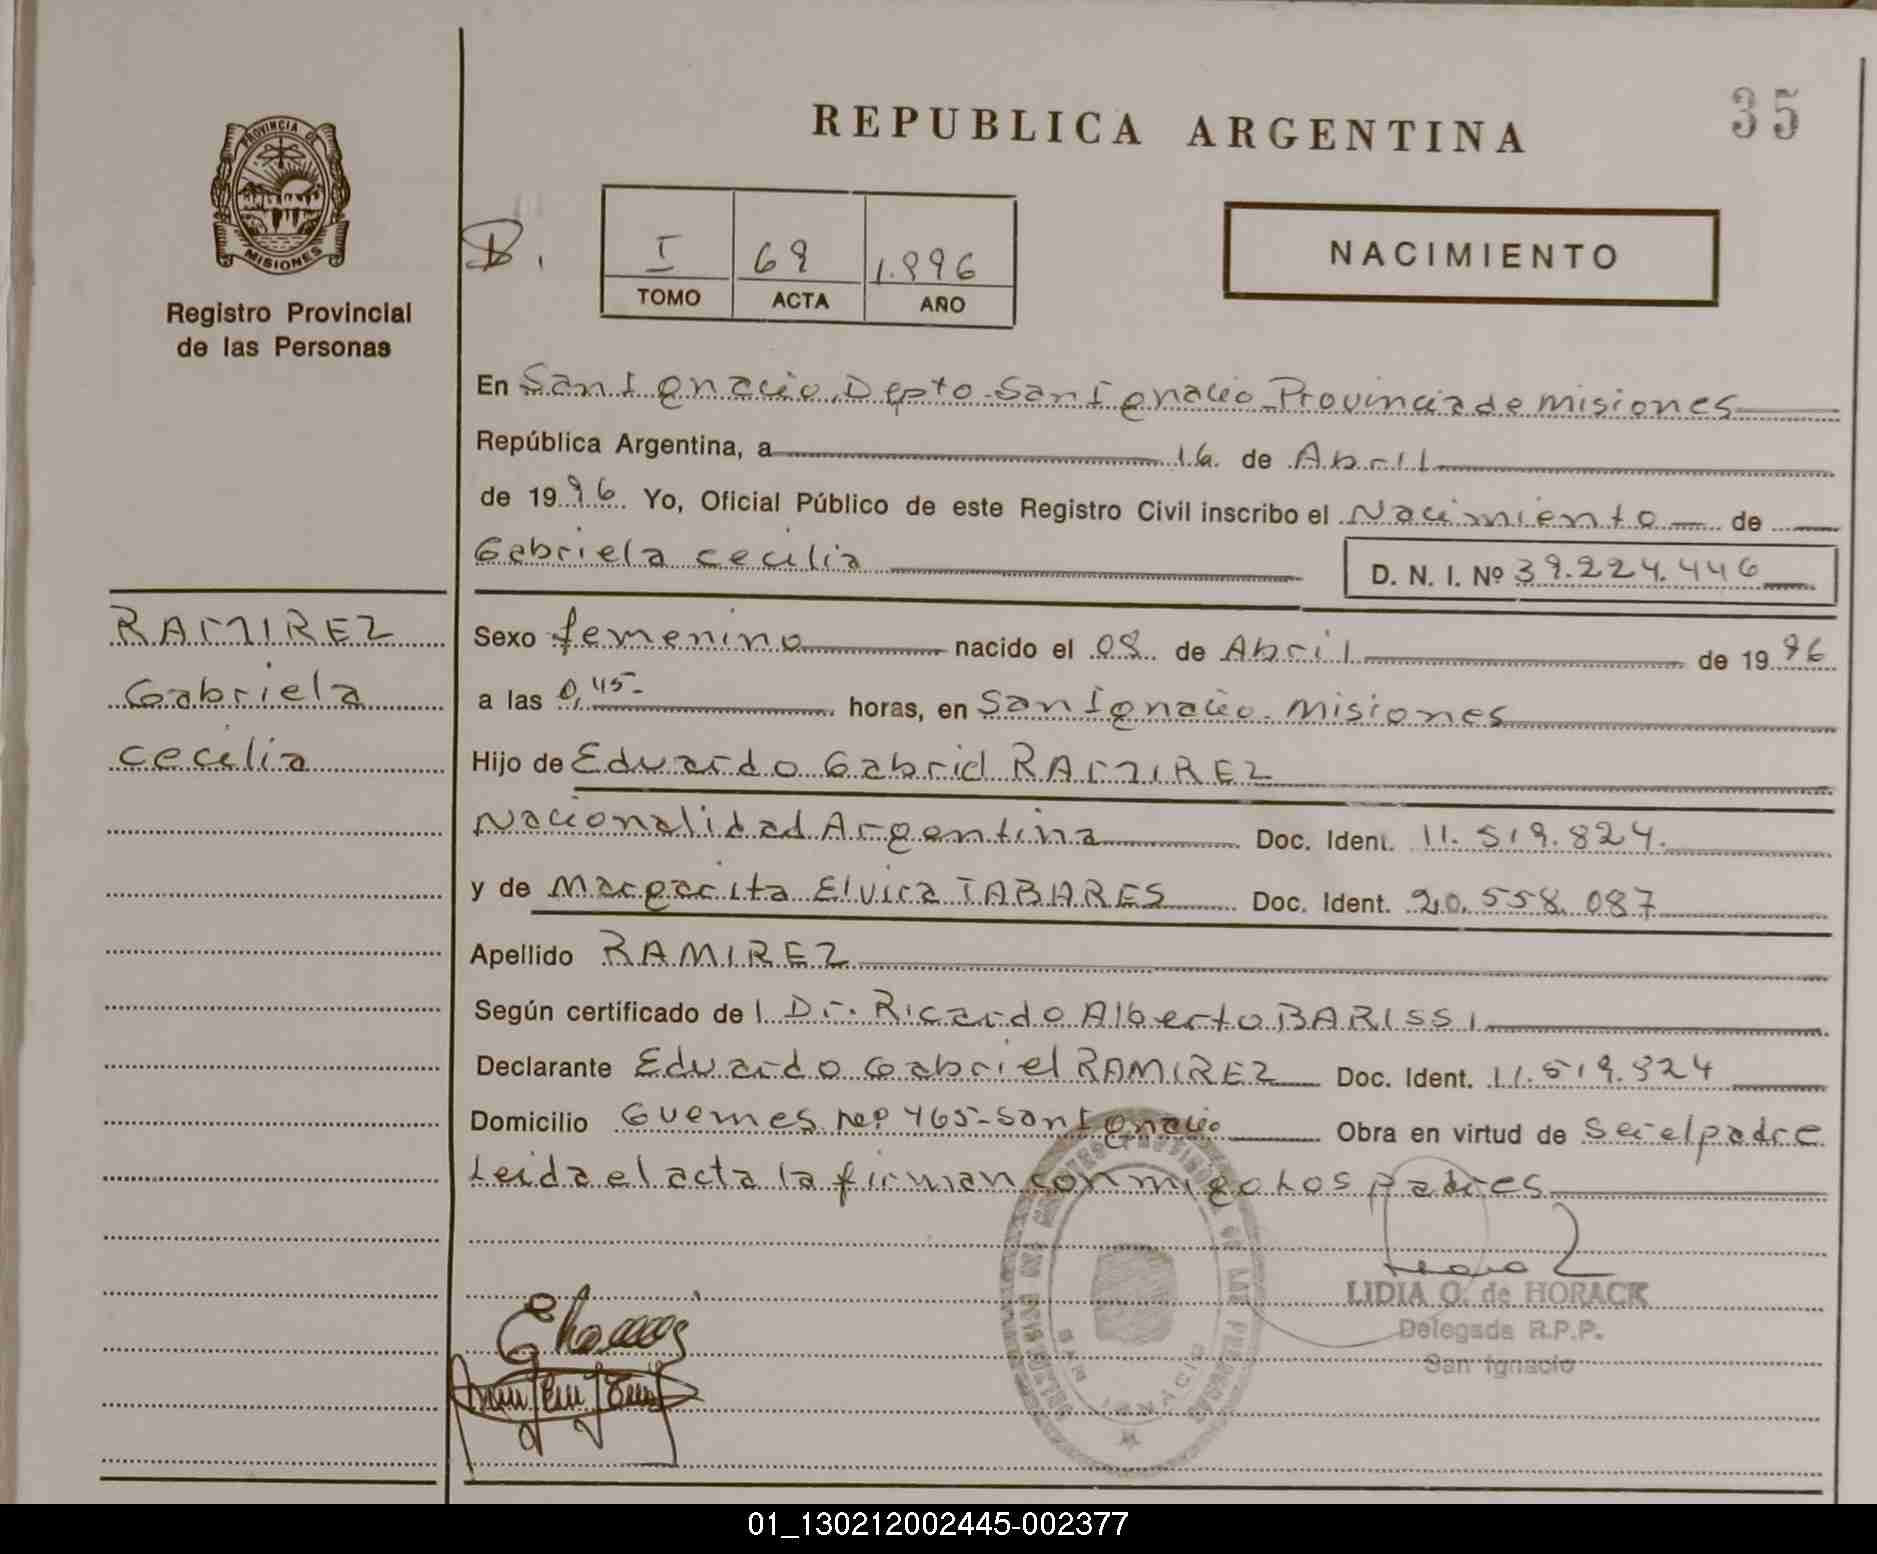 REPUBLICA ARGENTINA
35
PROVINCIA DE
MISIONES
Registro Provincial
de las Personas
I 69 1.996
TOMO ACTA AÑO
NACIMIENTO
En San Ignacio. Depto. San Ignacio Provincia de misiones
República Argentina, a 16 de Abril
de 1996 Yo, Oficial Público de este Registro Civil inscribo el Nacimiento de
Gabriela cecilia D. N. I. Nº 39.224.446
RAMIREZ
Gabriela
cecilia
Sexo femenino nacido el 08 de Abril de 1996
a las 0,45- horas, en San Ignacio. misiones
Hijo de Eduardo Gabriel RAMIREZ
Nacionalidad Argentina Doc. Ident. 11.519.824.
y de Margarita Elvira TABARES Doc. Ident. 20.558.087
Apellido RAMIREZ
Según certificado de l Dr. Ricardo Alberto BARISSI
Declarante Eduardo Gabriel RAMIREZ Doc. Ident. 11.519.824
Domicilio Guemes nº 465-San Ignacio Obra en virtud de ser el padre
Leida el acta la firman conmigo Los padres
LIDIA G. de HORACK
Delegada R.P.P.
San Ignacio
SAN IGNACIO
01_130212002445-002377